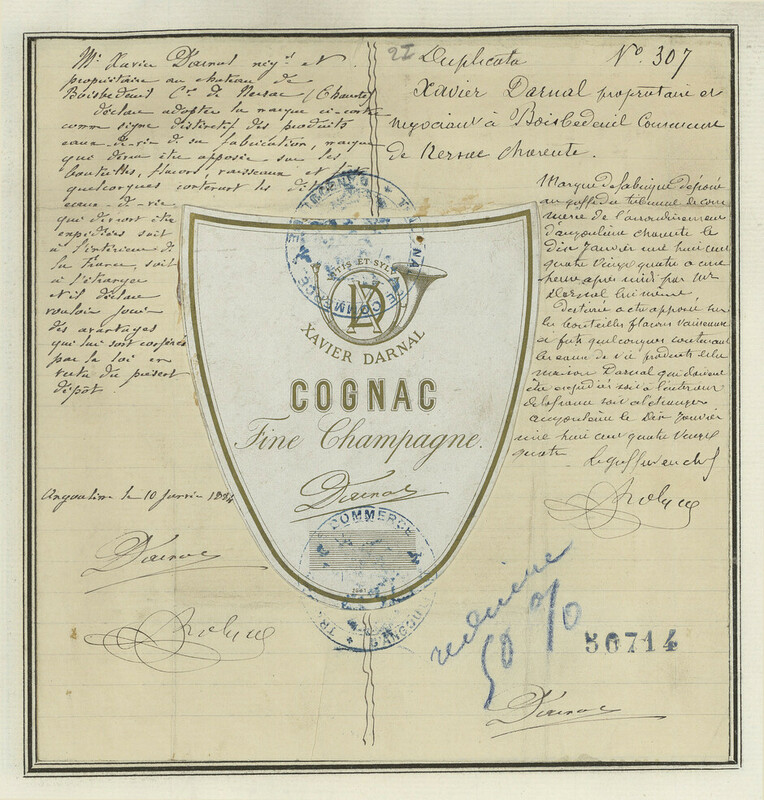 Mr Xavier Darnal négt et
propriétaire au chateau de
Boisbedeuil Cne de Nersac (Charente)
déclare adopter la marque ci-contre
comme signe distinctif des produits
eaux-de-vie de sa fabrication, marque
qui devra être apposée sur les
bouteilles, flacons, vaisseaux et
quelconques contenant les dites
eaux-de-vie
qui devront être
expédiées soit
à l'intérieur de
la France, soit
à l'étranger
et il déclare
vouloir jouir
des avantages
qui lui sont conférés
par la loi en
vertu du présent
dépôt.
Angoulême le 10 Janvier 1884
Darnal
Duplicata
No. 307
Xavier Darnal propriétaire et
négociant à Boisbedeuil Commune
de Nersac Charente.
Marque de fabrique déposée
au greffe du tribunal de com
merce de l'arrondissement
d'angoulême charente le
dix Janvier mil huit cent
quatre vingt quatre à une
heure après midi par Mr
Darnal lui même,
Destinée a être apposée sur
les bouteilles flacons vaisseaux
et futs quelconques contenant
les eaux de vie produits de la
maison Darnal qui doivent
être expédiés soit à l'intérieur
de la france soit à l'étranger
angoulême le Dix Janvier
mil huit cent quatre vingt
quatre
Le greffier en chef
VITIS ET SYLV
XD
XAVIER DARNAL
COGNAC
Fine Champagne.
Darnal
COMMERCE
réduire
50 %
50714
Darnal